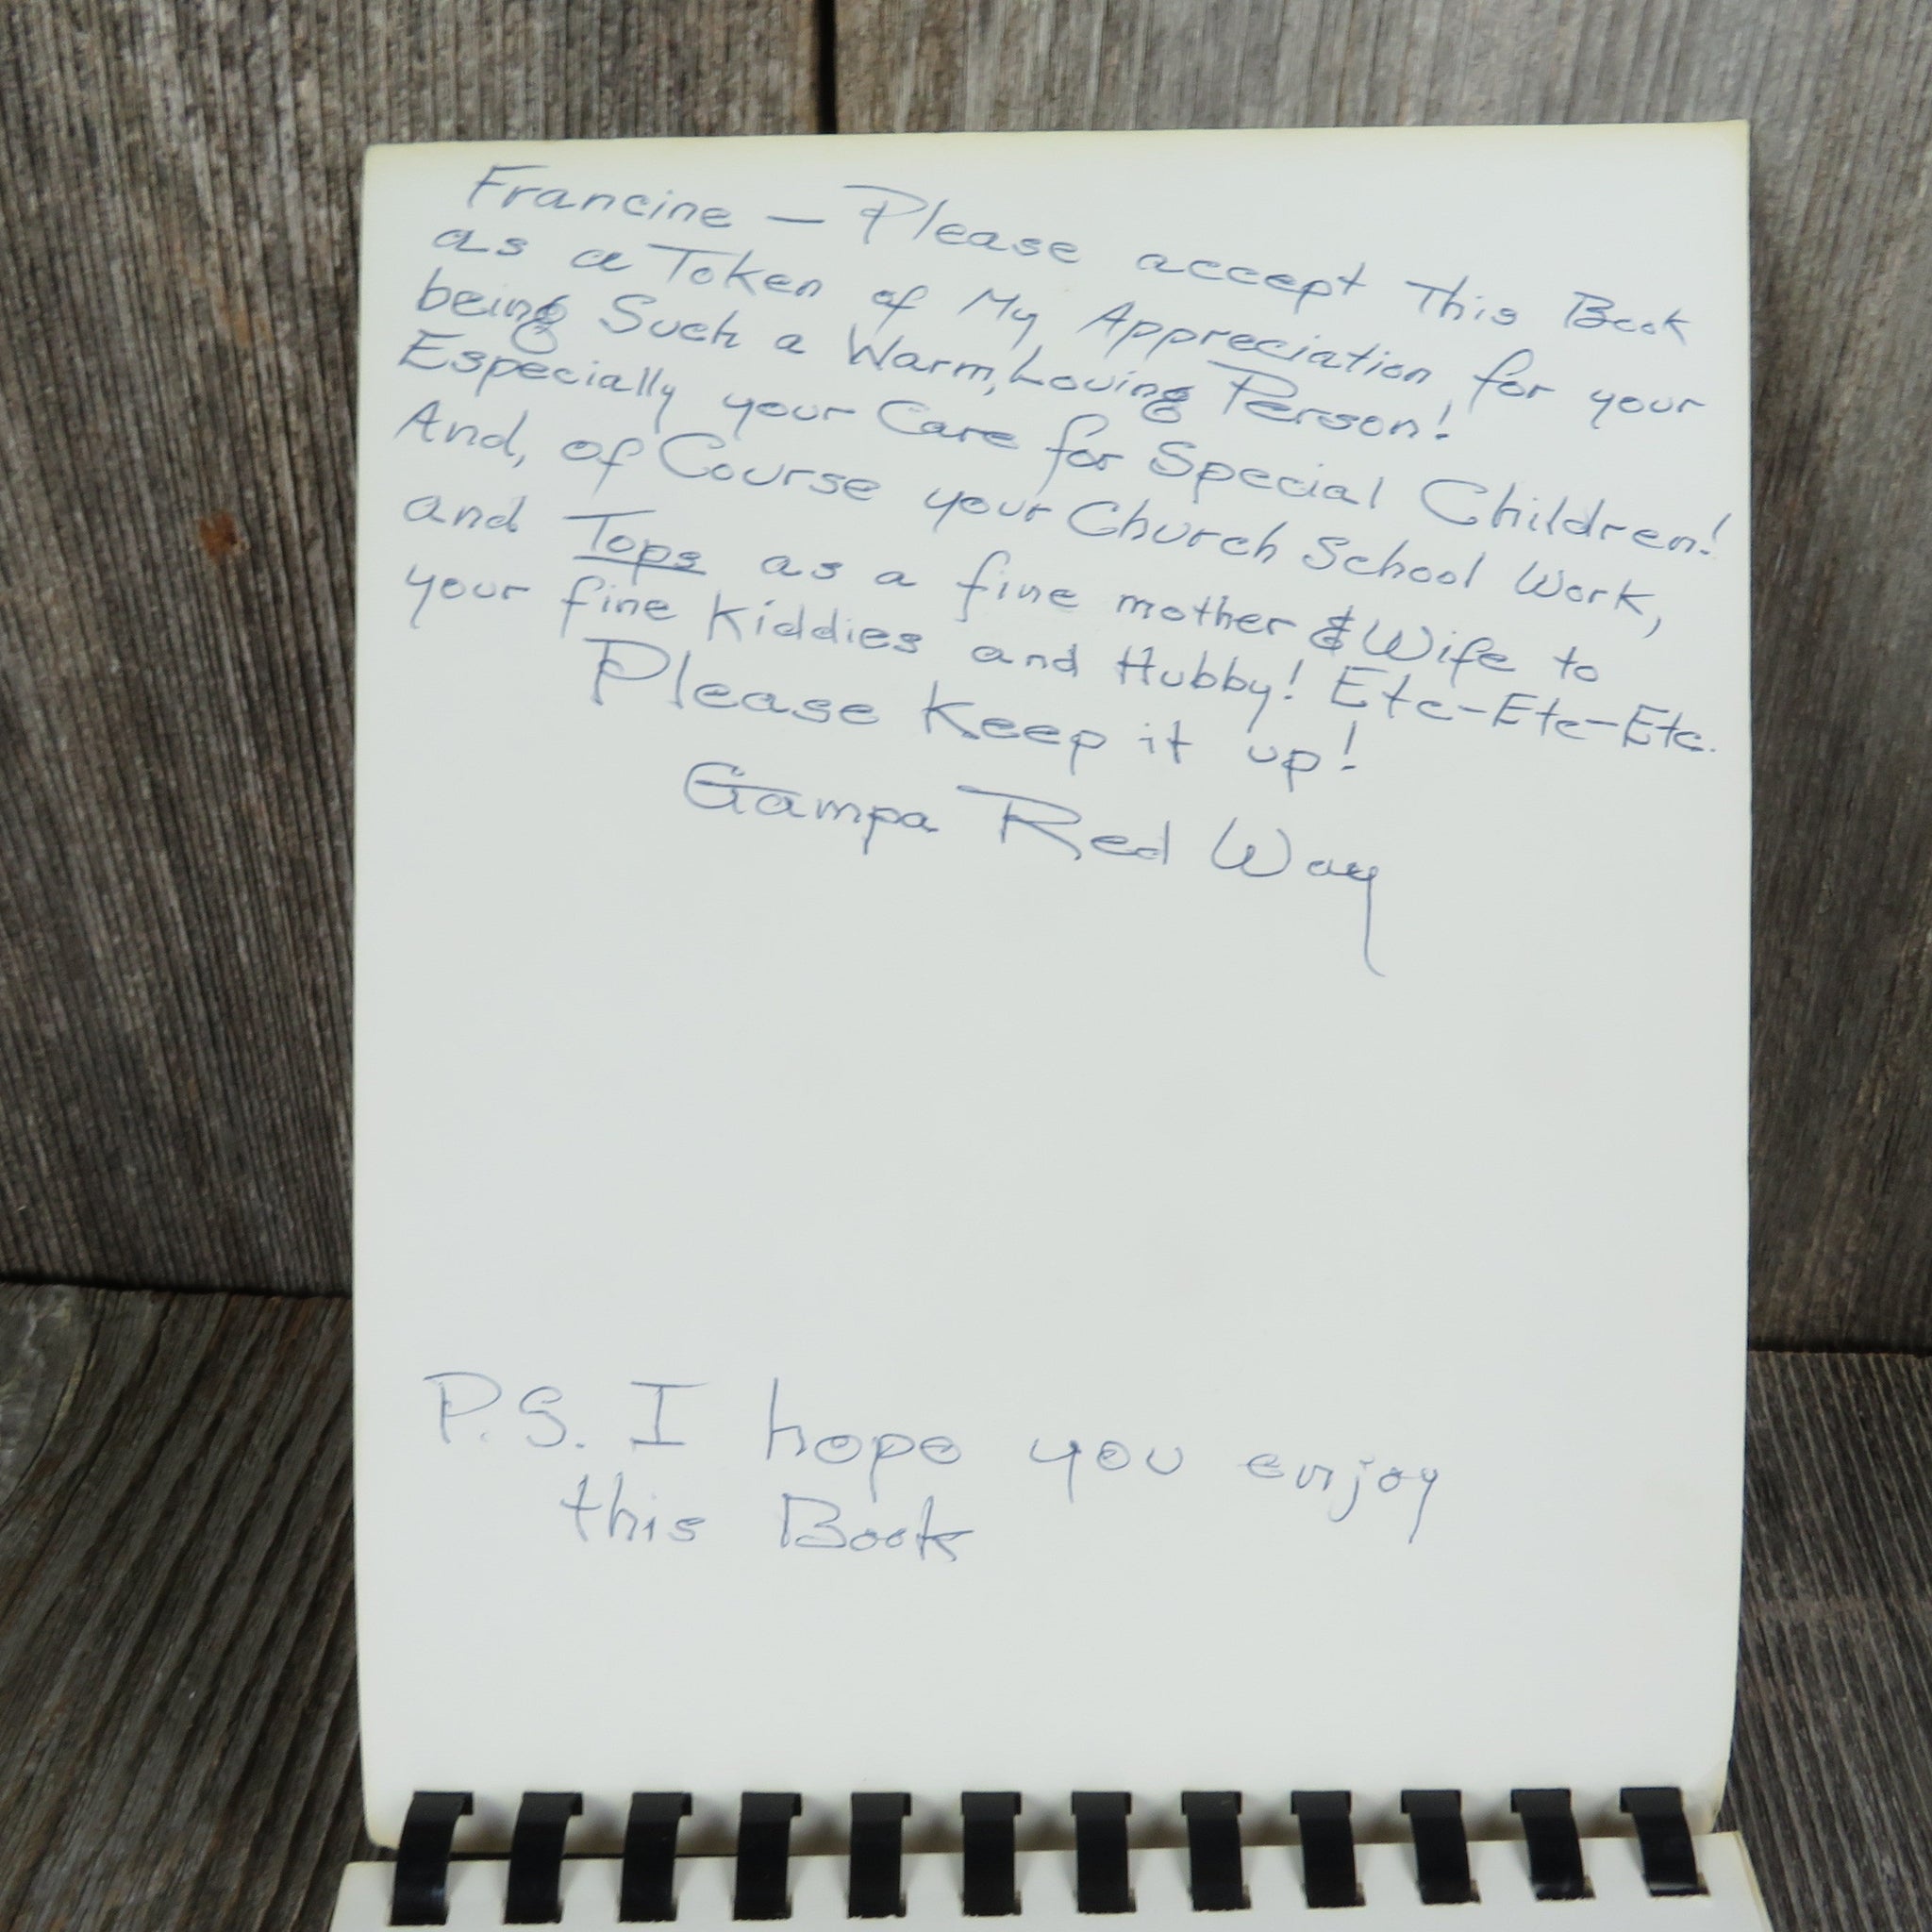 Francine — Please accept This Book
as a Token of My Appreciation for your
being Such a Warm, Loving Person!
Especially your Care for Special Children!
And, of Course your Church School Work,
and Tops as a fine mother & Wife to
your fine Kiddies and Hubby! Etc-Etc-Etc.
Please Keep it up!
Gampa Red Way
P.S. I hope you enjoy
this Book